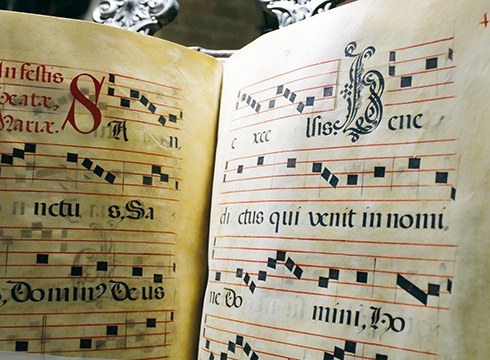 In festis
Beatæ,
Mariæ.
S A n,
nctu s, Sa
s, Domin9 Deus
e xce lsis. Bene
di ctus qui venit in nomi
ne Do mini, Ho